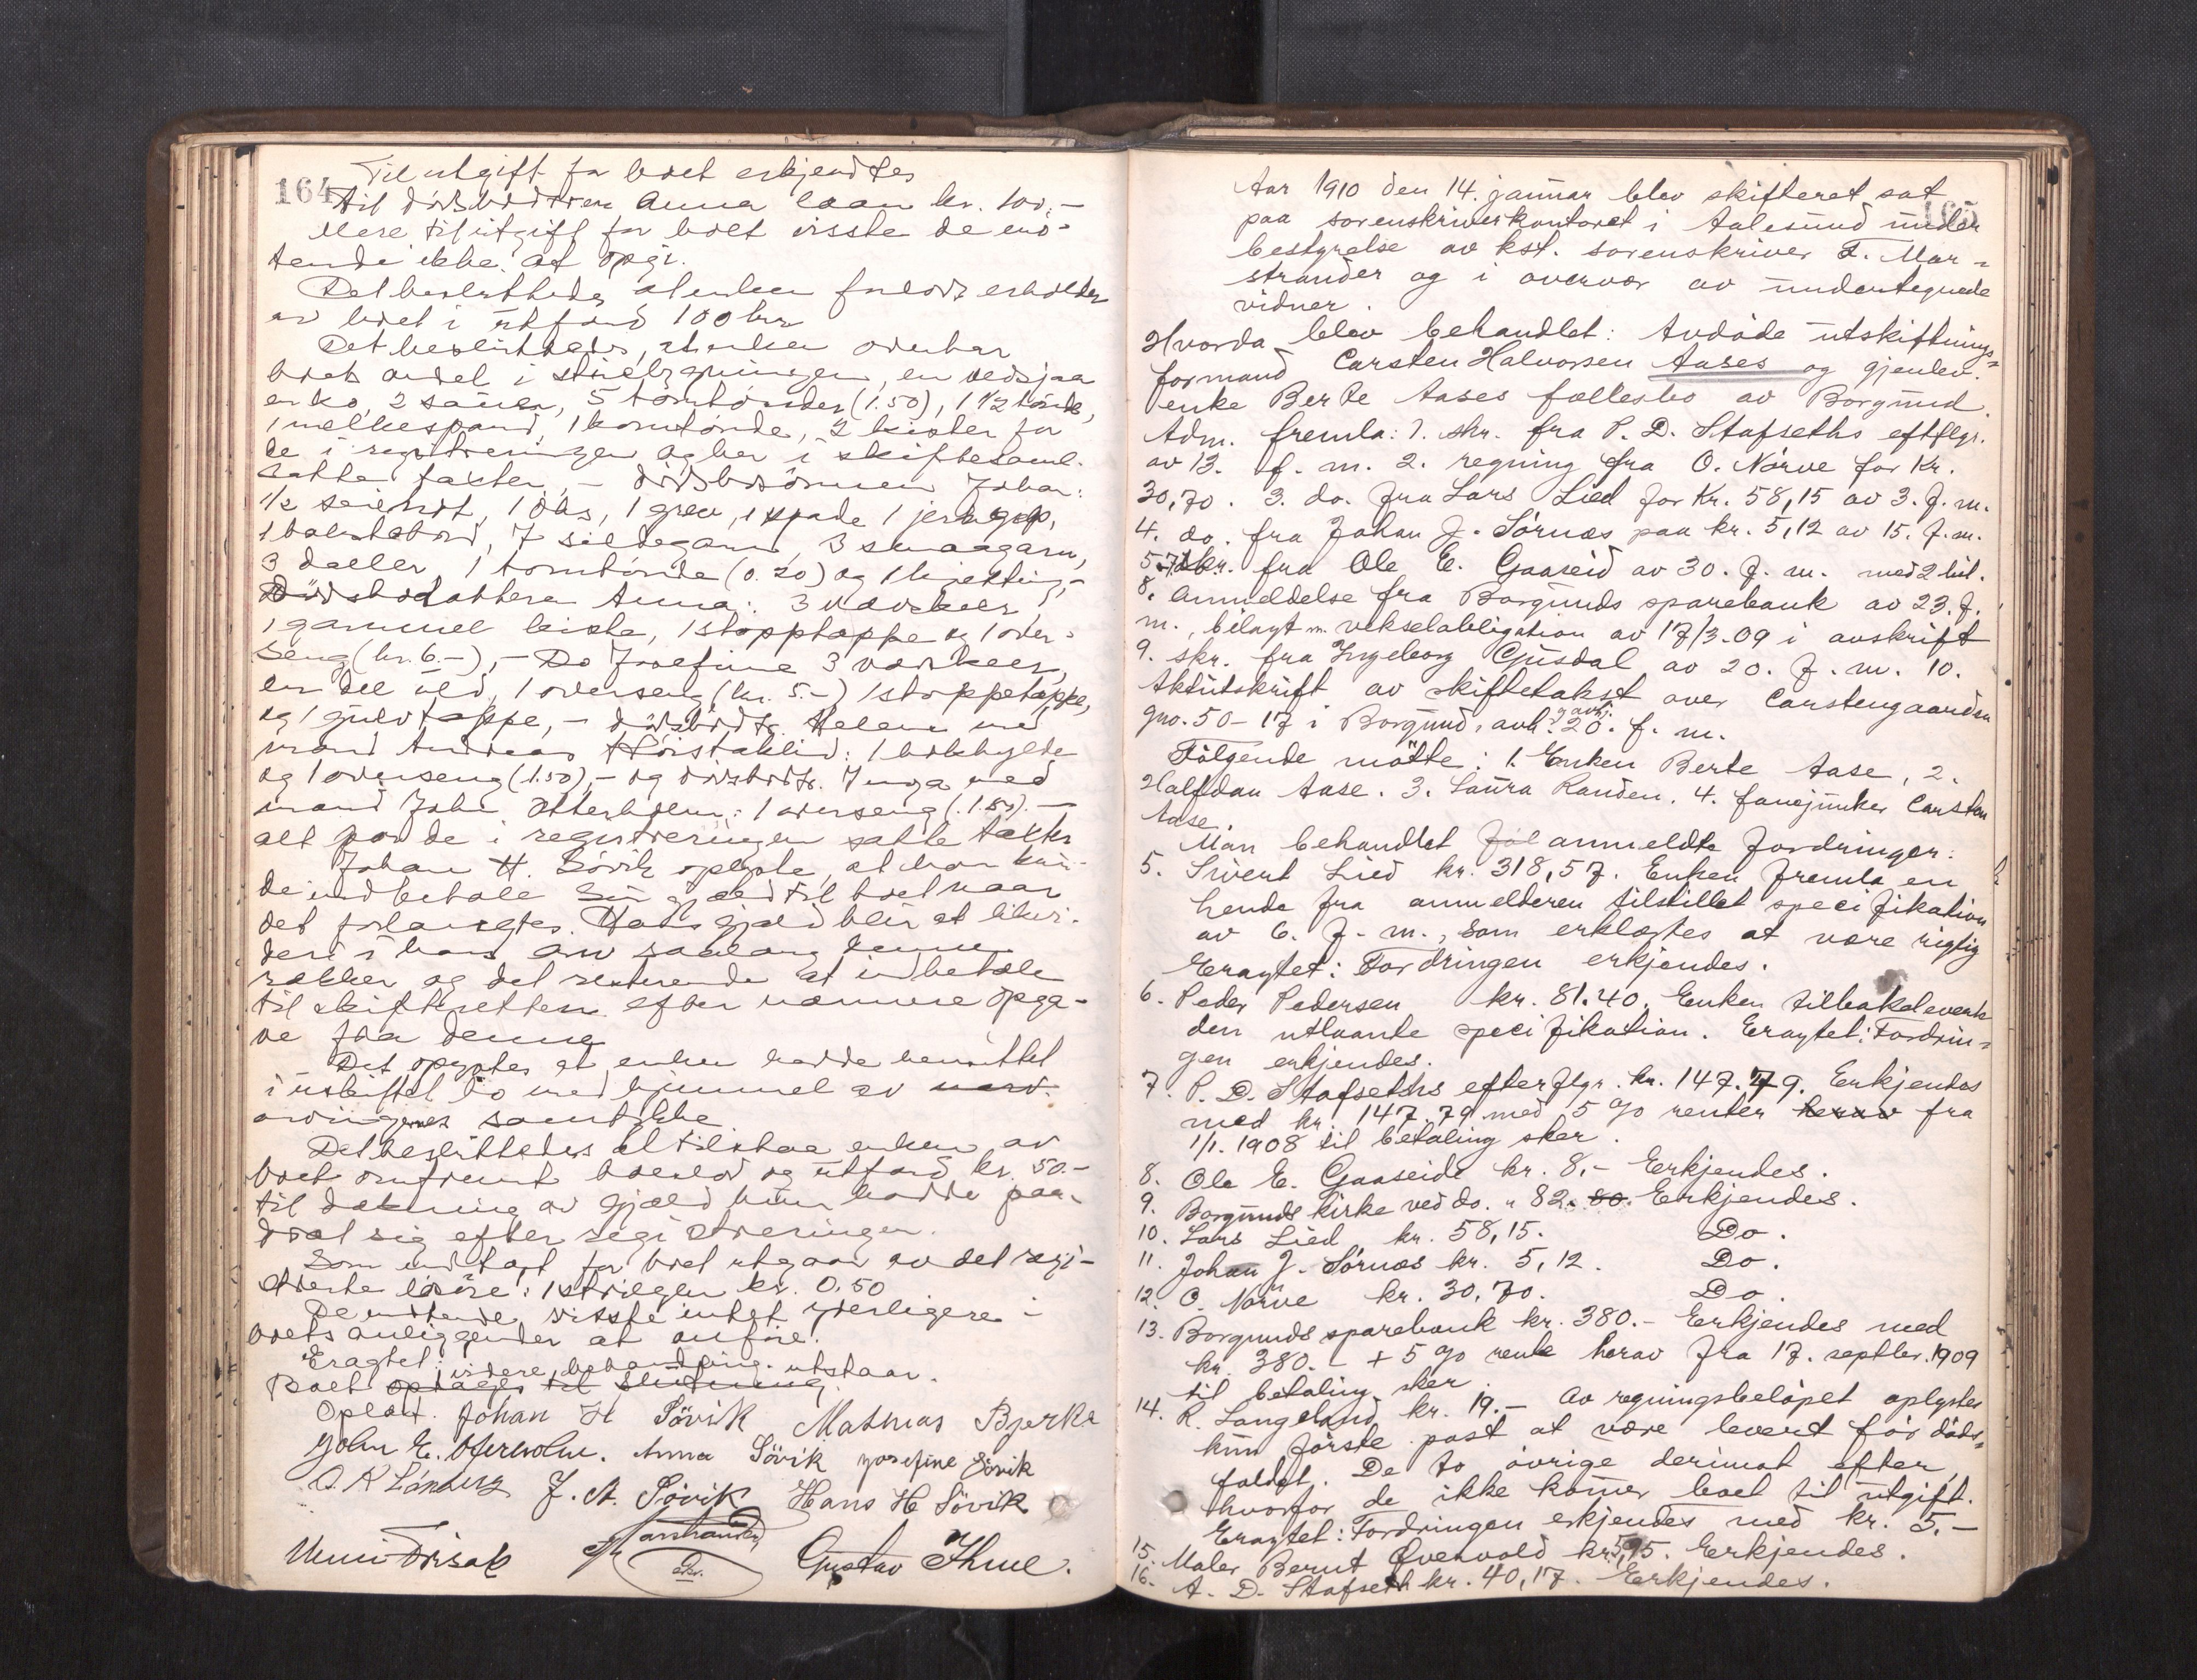 164
Til utgift for boet erkjendtes
til dødsbodatteren Anna laan kr. 100,-
Mere til utgift for boet visste de mö-
tende ikke at opgi.
Det besluttedes at enken forlods erholder
av boet i utfærd 100 kr.
Det besluttedes, at enken overtar
boets andel i, en vedsjaa
en ko, 2 sauer, 5 tomtönder (1.50), 1 1/2 tönde,
1 melkespand, 1 korntönde, 2 kister for
de i registreringen og her i skiftesaml.
satte taxter, - dödsbosönnen Johan:
1/2 1 öks, 1 grev, 1 spade 1
1 7 sildegarn, 3 smaagarn,
3 1 korntönde (0.20) og 1 kjetting, -
Dödsbodatteren Anna: 3 vævskeer,
1 gammel kiste, 1 stopptæppe og 1 over-
seng (kr. 6.-), - Do Josefine 3 vævskeer,
en del uld, 1 overseng (kr. 5.-) 1 stoppetæppe,
og 1 gulvtæppe, - dödsbodtr. Helene med
mand Andreas 1 bokhylde
og 1 overseng (1.50), - og dödsbodtr. Inga med
mand John Otterholm: 1 overseng (1.50). -
alt for de i registreringen satte taxter
Johan H. Sövik oplyste, at han kun-
de indbetale sin gjæld til boet naar
det forlangtes. Hans gjæld blir at likvi-
dere i hans arv saalangt denne
rækker og det resterende at indbetale
til skifteretten efter nærmere opga-
ve fra denne
Det oplystes at enken hadde hensittet
i uskiftet bo med hjemmel av
arvingernes samtykke
Det besluttedes at tilstaa enken av
boet omfremt boeslod og utfærd kr. 50.-
til dækning av gjæld hun hadde paa-
drat sig efter registreringen.
Som indtægt for boet utgaar av det regi-
strerte lösöre: 1 kr. 0.50
De mötende visste intet yderligere i
boets anliggender at anföre.
Eragtet: videre behandling utstaar.
Boet optages til slutning
Oplæst. Johan H Sövik Mathias Bjerke
John E. Oterholm. Anna Sövik Josefine Sövik
J. A. Sövik Hans H Sövik
F. Marstrander
cst. Gustav Thue.
165
Aar 1910 den 14. januar blev skifteret sat
paa sorenskriverkontoret i Aalesund under
bestyrelse av kst. sorenskriver F. Mar-
strander og i overvær av undertegnede
vidner.
Hvorda blev behandlet: Avdöde utskiftnings-
formand Carsten Halvorsen Aases og gjenlev.
enke Berte Aases fællesbo av Borgund.
Adm. fremla: 1. skr. fra P. D. Stafseths eftflgr.
av 13. f. m. 2. regning fra O. Nörve for Kr.
30,70. 3. do. fra Lars Lied for Kr. 58,15 av 3. f. m.
4. do. fra Johan J. Sörnæs paa kr. 5,12 av 15. f. m.
5-7. skr. fra Ole E. Gaaseid av 30. f. m. med 2 bil.
8. Anmeldelse fra Borgunds sparebank av 23. f.
m., bilagt m. vekselobligation av 17/3-09 i avskrift
9. skr. fra Ingeborg Gusdal av 20. f. m. 10.
Aktutskrift av skiftetakst over Carstengaarden
gno. 50-17 i Borgund, avh. 20. f. m.
Fölgende mötte: 1. Enken Berte Aase, 2.
Halfdan Aase. 3. Laura Randen. 4. fanejunker Carsten
Aase.
Man behandlet föl anmeldte fordringer:
5. Sivert Lied kr. 318,57. Enken fremla en
hende fra anmelderen tilstillet specifikation
av 6. f. m., som erklærtes at være rigtig
Eragtet: Fordringen erkjendes.
6. Peder Pedersen kr. 81.40. Enken tilbakeleverte
den utlaante specifikation. Eragtet: Fordrin-
gen erkjendes.
7. P. D. Stafseths efterflgr. kr. 147.79. Erkjendes
med kr. 147.79 med 5 % renter herav fra
1/1. 1908 til betaling sker.
8. Ole E. Gaaseide kr. 8.- Erkjendes.
9. Borgunds kirke ved do. " 82.80. Erkjendes.
10. Lars Lied kr. 58,15. Do.
11. Johan J. Sörnæs kr. 5,12. Do.
12. O. Nörve kr. 30,70. Do.
13. Borgunds sparebank kr. 380.- Erkjendes med
kr. 380.- + 5 % rente herav fra 17. septbr. 1909
til betaling sker.
14. R. Langeland kr. 19.- Av regningsbelöpet oplystes
kun förste post at være levert för döds-
faldet. De to övrige derimot efter,
hvorfor de ikke kommer boet til utgift.
Eragtet: Fordringen erkjendes med kr. 5.-
15. Maler Bernt Qvenvold kr. 5,95. Erkjendes.
16. A. D. Stafseth kr. 40,17. Erkjendes.